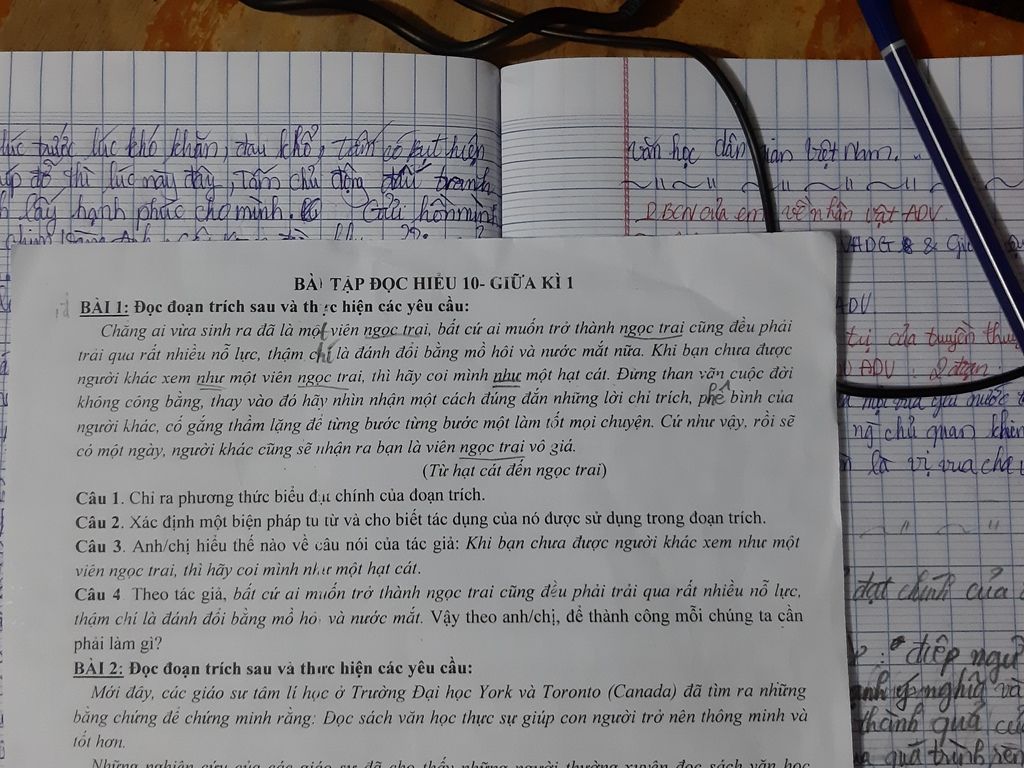 lúc trước lúc khó khăn, đau khổ, Tấm có bụt hiện
đỡ thì lúc này đây, Tấm chủ động đấu tranh
lấy hạnh phúc cho mình. Gửi hồn mình
văn học dân gian việt nam.
BCN của em về nhân vật ADV
VADG &
ADV
của truyền thuyết
ADV : 2 đoạn
chủ quan khiến
là vị vua
BÀI TẬP ĐỌC HIỂU 10- GIỮA KÌ 1
BÀI 1: Đọc đoạn trích sau và thực hiện các yêu cầu:
Chẳng ai vừa sinh ra đã là một viên ngọc trai, bất cứ ai muốn trở thành ngọc trai cũng đều phải
trải qua rất nhiều nỗ lực, thậm chí là đánh đổi bằng mồ hôi và nước mắt nữa. Khi bạn chưa được
người khác xem như một viên ngọc trai, thì hãy coi mình như một hạt cát. Đừng than vãn cuộc đời
không công bằng, thay vào đó hãy nhìn nhận một cách đúng đắn những lời chỉ trích, phê bình của
người khác, cố gắng thầm lặng để từng bước từng bước một làm tốt mọi chuyện. Cứ như vậy, rồi sẽ
có một ngày, người khác cũng sẽ nhận ra bạn là viên ngọc trai vô giá.
(Từ hạt cát đến ngọc trai)
Câu 1. Chỉ ra phương thức biểu đạt chính của đoạn trích.
Câu 2. Xác định một biện pháp tu từ và cho biết tác dụng của nó được sử dụng trong đoạn trích.
Câu 3. Anh/chị hiểu thế nào về câu nói của tác giả: Khi bạn chưa được người khác xem như một
viên ngọc trai, thì hãy coi mình như một hạt cát.
Câu 4 Theo tác giả, bất cứ ai muốn trở thành ngọc trai cũng đều phải trải qua rất nhiều nỗ lực,
thậm chí là đánh đổi bằng mồ hôi và nước mắt. Vậy theo anh/chị, để thành công mỗi chúng ta cần
phải làm gì?
BÀI 2: Đọc đoạn trích sau và thực hiện các yêu cầu:
Mới đây, các giáo sư tâm lí học ở Trường Đại học York và Toronto (Canada) đã tìm ra những
bằng chứng để chứng minh rằng: Đọc sách văn học thực sự giúp con người trở nên thông minh và
tốt hơn.
Những nghiên cứu của các giáo sư đã cho thấy những người thường xuyên đọc sách văn học
đạt chính của
điệp ngữ
ý nghĩa và
thành quả
quá trình rèn